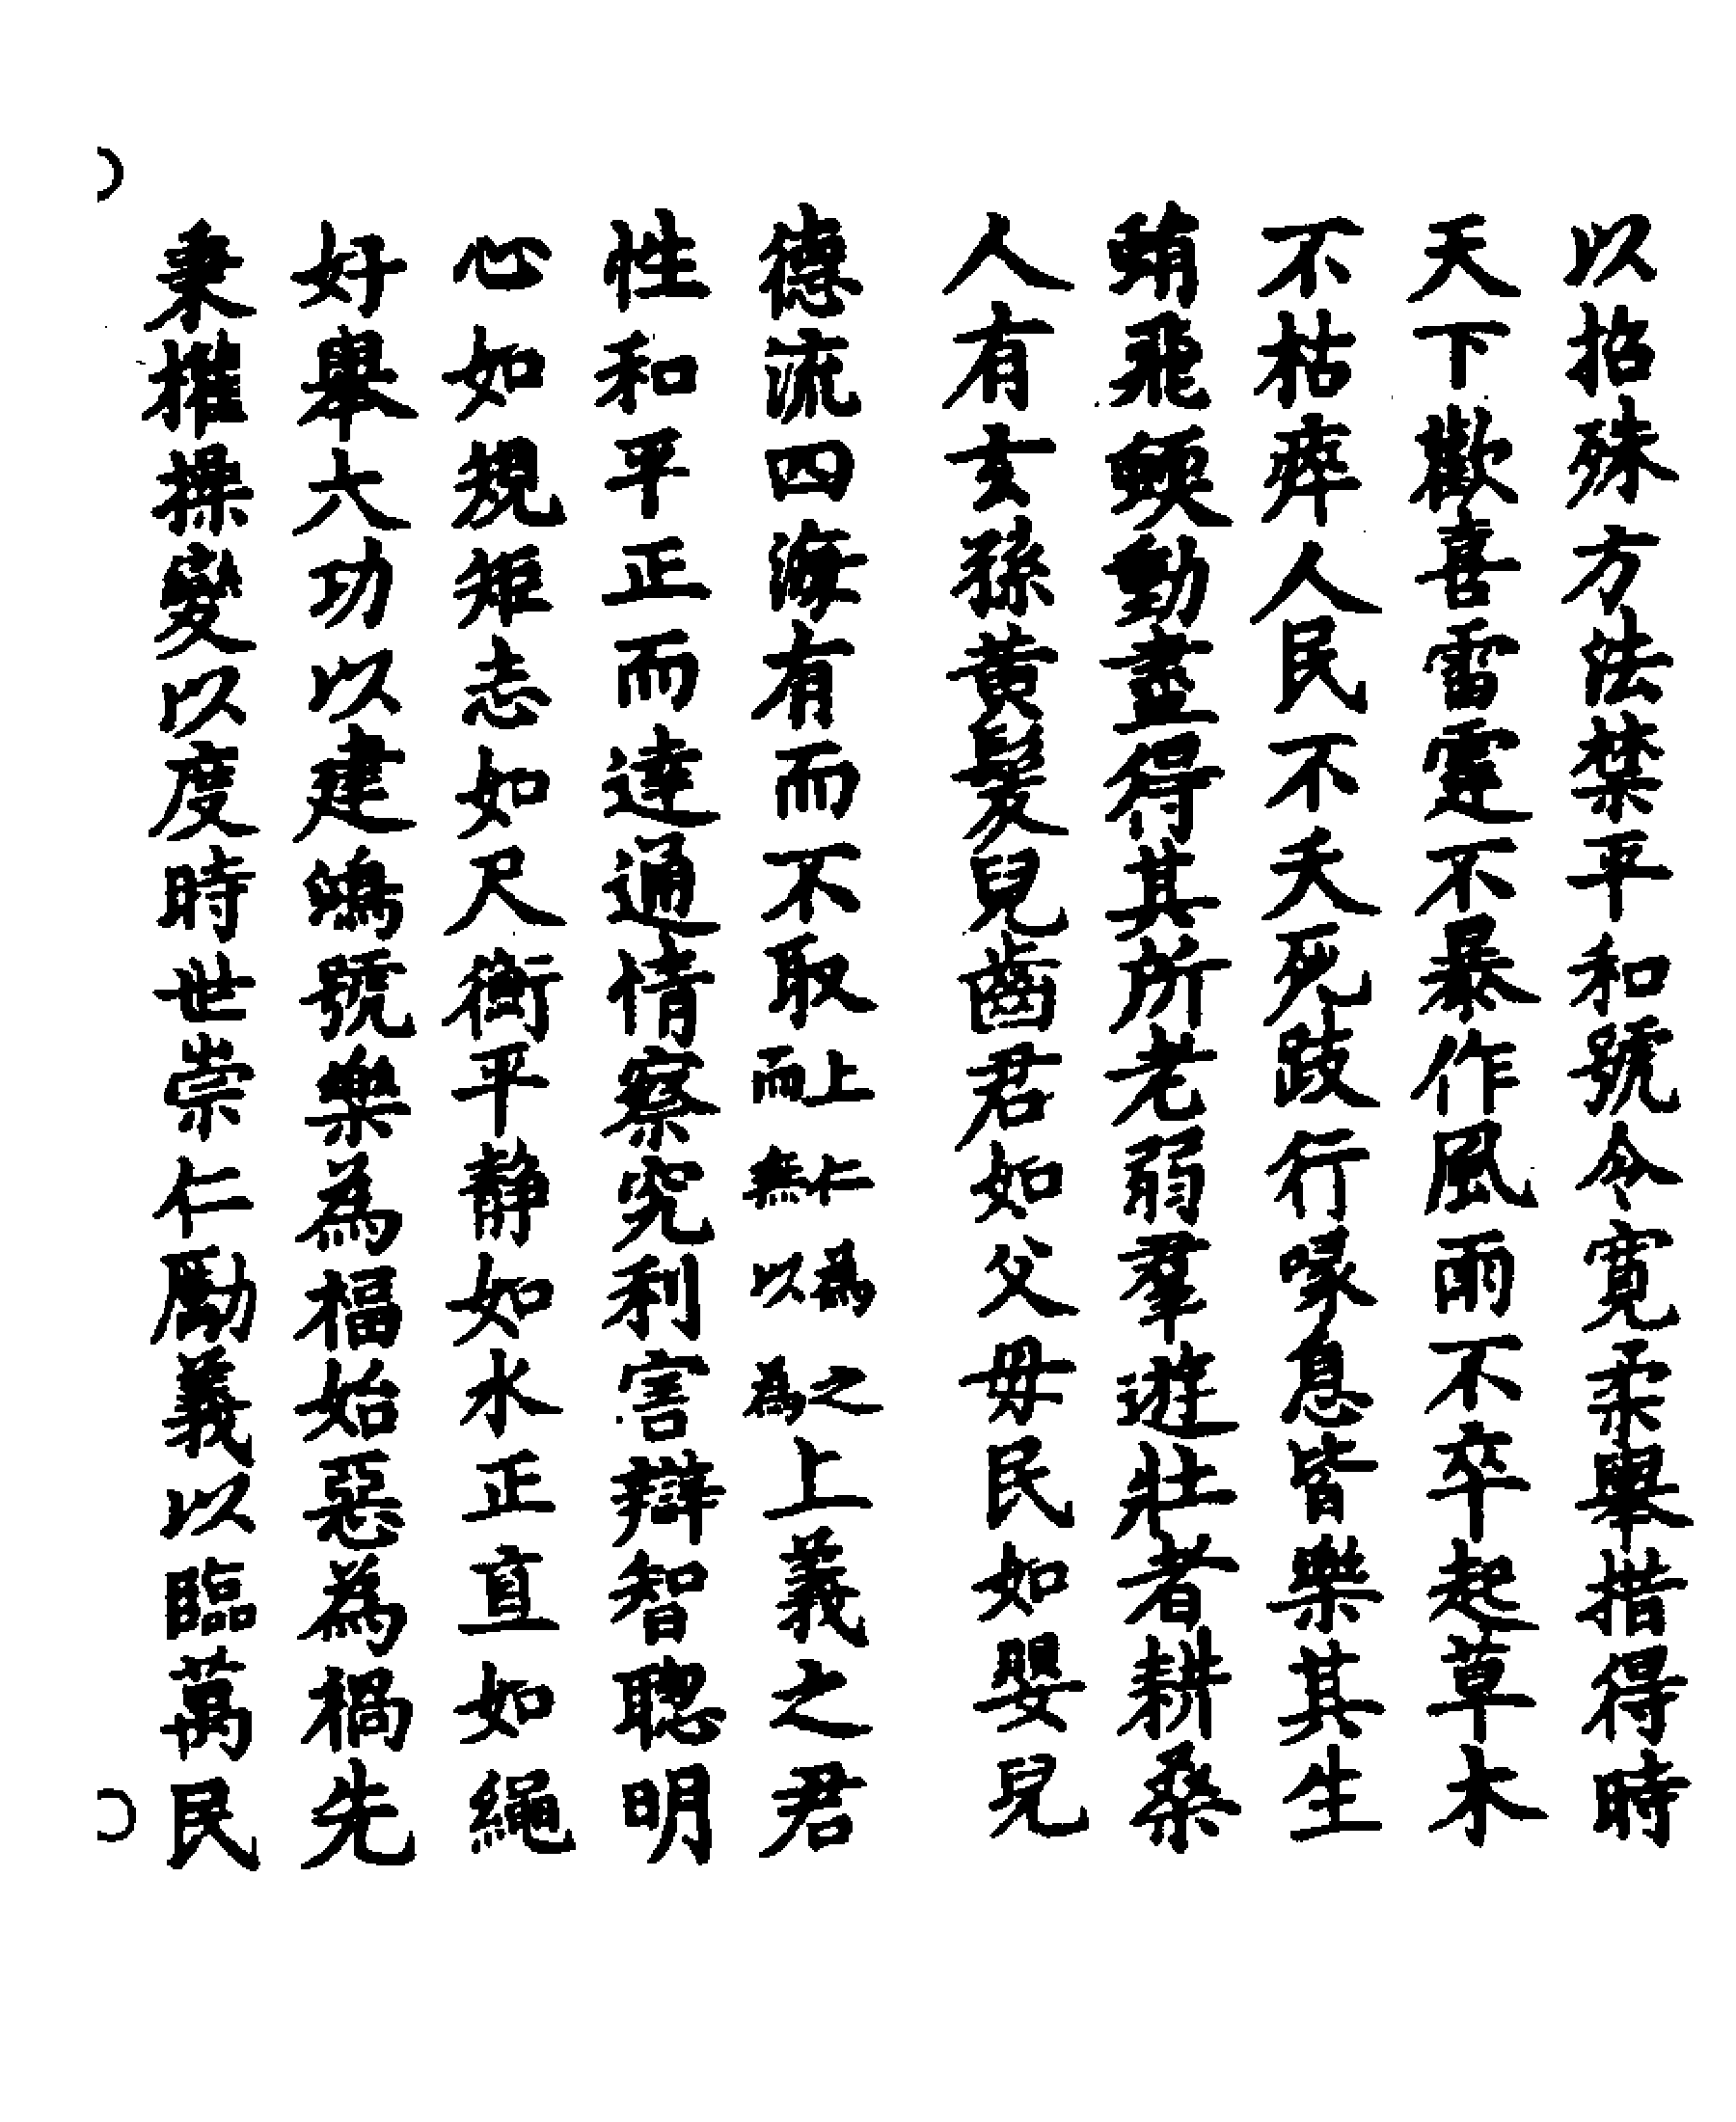 以招殊方法禁平和號令寬柔舉措得時
天下歡喜雷霆不暴作風雨不卒起草木
不枯瘁人民不夭死跂行喙息皆樂其生
蜎飛蝡動盡得其所老弱羣遊壯者耕桑
人有玄孫黃髮兒齒君如父母民如嬰兒
德流四海有而不取上仁為之而無以為上義之君
性和平正而達通情察究利害辯智聰明
心如規矩志如尺衡平靜如水正直如繩
好舉大功以建鴻號樂為福始惡為禍先
秉權操變以度時世崇仁勵義以臨萬民